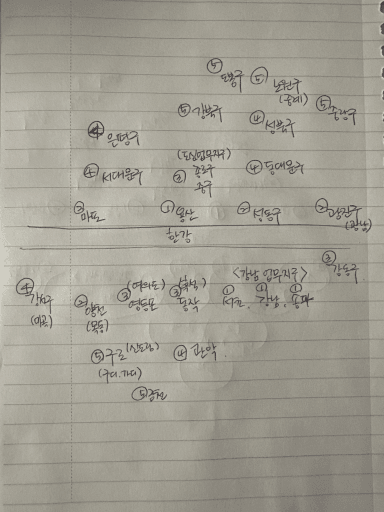 ⑤ 도봉구 ⑤ 노원구
(중계)
⑤ 강북구 ④ 성북구 ⑤ 중랑구
④ 은평구
(도심업무지구)
④ 서대문구 ③ 종로구 ④ 동대문구
중구
② 마포 ① 용산 ② 성동구 ② 광진구
(광남)
한강
③ 강동구
<강남 업무지구>
④ 강서구 ② 양천 ③ (여의도) ③
(마곡) (목동) 영등포 동작 ① 서초, ① 강남, ① 송파
⑤ 구로 (신도림) ④ 관악
(구디.가디)
⑤ 금천